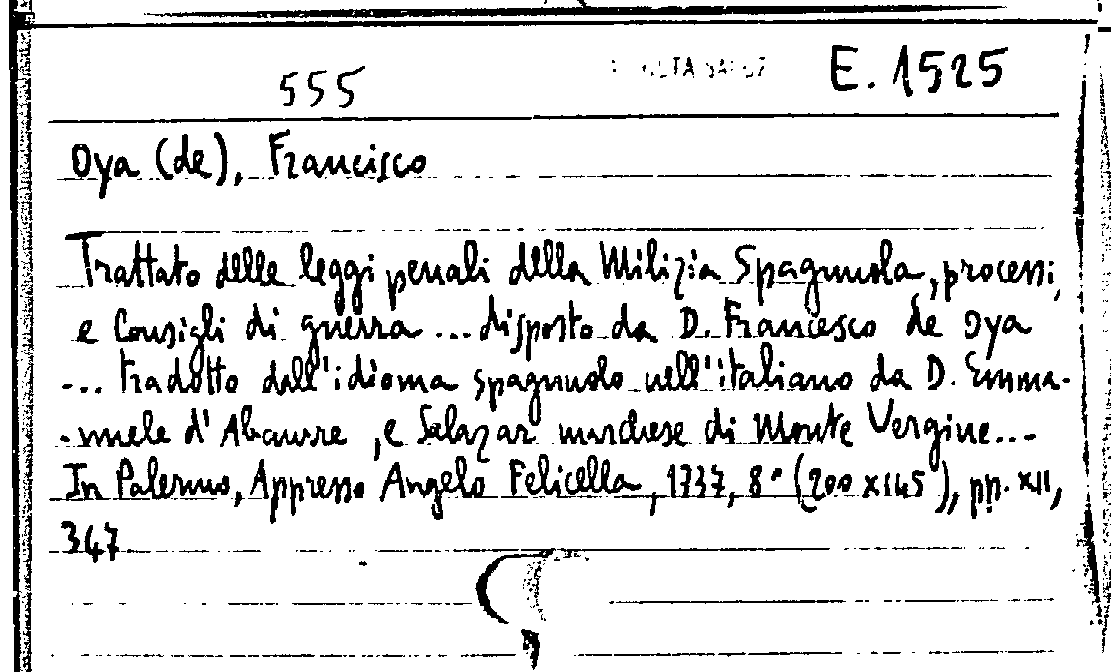 555 E. 1525
Oya (de), Francisco
Trattato delle leggi penali della Milizia Spagnuola, processi,
e Consigli di guerra ... disposto da D. Francesco de Oya
... tradotto dall'idioma spagnuolo nell'italiano da D. Emma-
-nuele d'Abaurre, e Salazar marchese di Monte Vergine...
In Palermo, Appresso Angelo Felicella, 1737, 8° (200x145), pp. XII,
347